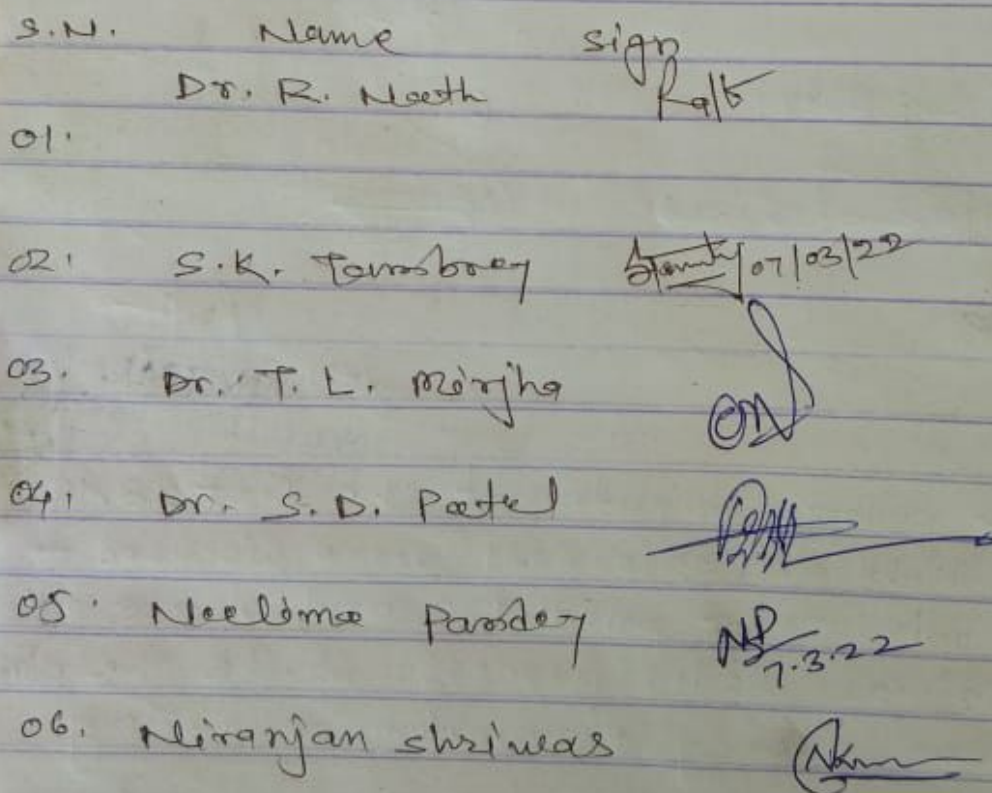 S.N. Name sign
Dr. R. Nath
01.
02. S.K. Tamboey 07/03/22
03. Dr. T. L. Mirjha
04. Dr. S. D. Patel
05. Neelima Pandey NP 7.3.22
06. Niranjan shriwas